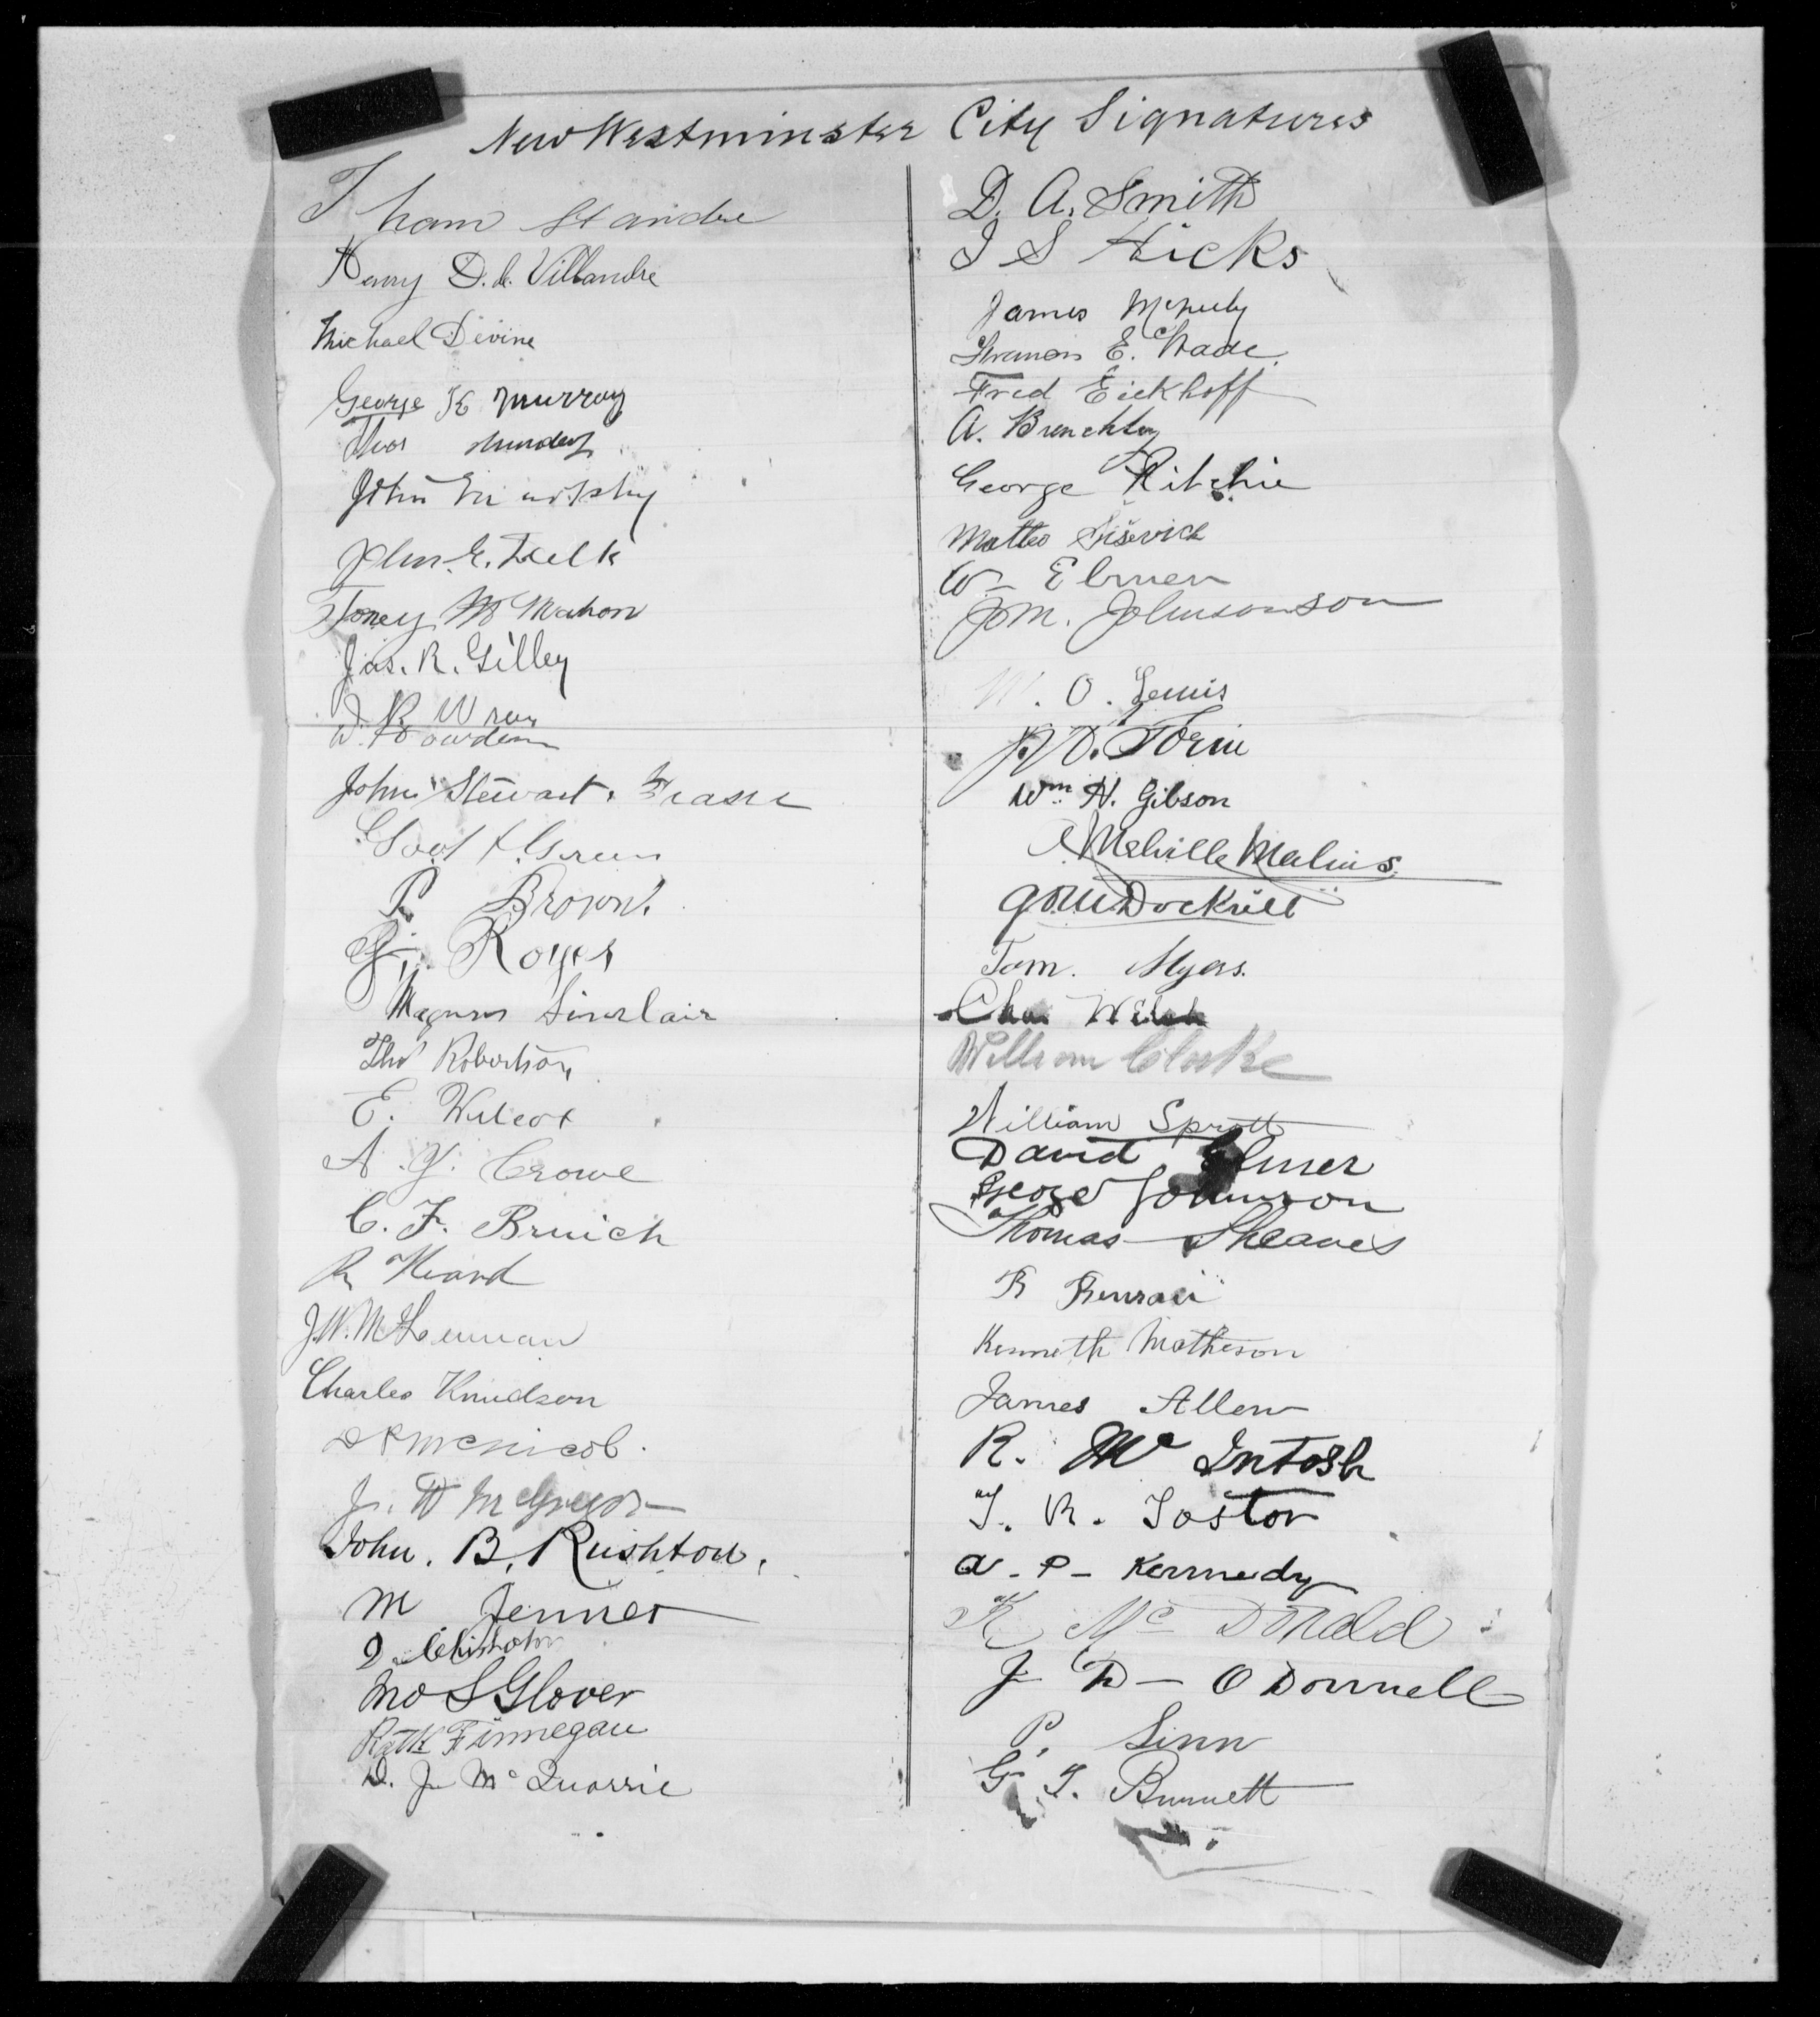 New Westminster City Signatures
Henry D. de Villandre
Michael Devine
George K Murray
Thos Munday
John Murphy
John E.
Toney McMahon
Jas. R. Gilley
D R Wren
W. Bowden
John Stewart. Fraser
Green
P. Brown.
Royes
Magnus Sinclair
Thos Robertson
E. Wilcox
A. Y. Crowe
C. F. Bruich
R Heard
J. W. McLennan
Charles Knudson
D R McNicol.
J. D McGregor
John. B. Rushton.
M Jenner
D. Chisholm
Jno S Glover
Patk Finnegan
D. J. McQuarrie
D. A. Smith
J S Hicks
James McNeely
Francis E. Wade.
Fred Eickhoff
A. Brenchley
George Ritchie
Matteo
W. Elmer
J M. Johnsonson
W. O. Lewis
Wm H. Gibson
A Melville Malins
Dockrill
Tom. Myers.
Chas Welsh
William Clarke
William Sprott
David Elmer
George Johnson
Thomas Sheaves
R
Kenneth Matheson
James Allen
R. McIntosh
T. R. Foster
A. P. Kennedy
K McDonald
J D - O Donnell
P. Linn
G. T. Burnett